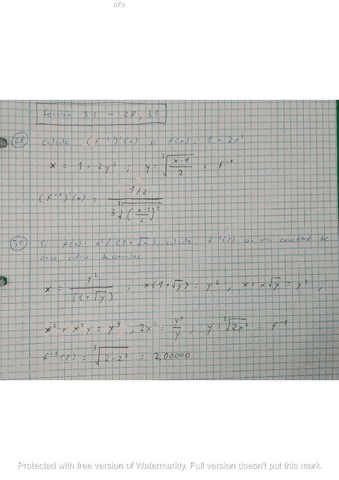 n/n
Session 3.1 - 28, 31
28 Calcule (F⁻¹)'(x) si F(x) = 1 + 2x³
x = 1 + 2y³ , y = ∛((x-1)/2) = F⁻¹
(F⁻¹)'(x) = (1/2) / (3 ∛((x-1)/2)²)
31 Si F(x) = x²/(1+√x), calcule F⁻¹(2)
x = y²/(1+√y) , x(1+√y) = y² , x + x√y = y² ;
x² + x²y = y⁴ , 2x² = y⁴/y , y = ∛(2x²) = F⁻¹
F⁻¹(2) = ∛(2·2²) = 2,00000
Protected with free version of Watermarkly. Full version doesn't put this mark.